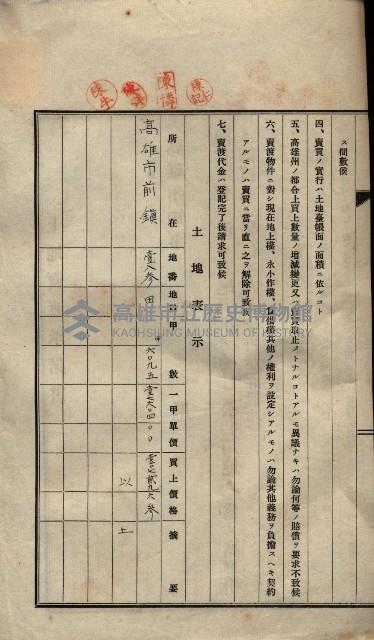 ス間敷候
四、賣買ノ實行ハ土地臺帳面ノ面積ニ依ルコト
五、高雄州ノ都合上買上數量ノ增減變更又ハ賣買取止ノトナルコトアルモ異議ナキハ勿論何等ノ賠償ヲ要求不致候
六、賣渡物件ニ對シ現在地上權、永小作權、賃借權其他ノ權利ヲ設定シアルモノハ勿論其他義務ヲ負擔スヘキ契約
アルモノハ賣買ニ當リ直ニ之ヲ解除可致候
七、賣渡代金ハ登記完了後請求可致候
土地表示
所在 地番 地目 甲數 一甲單價 買上價格 摘要
高雄市前鎮 壹八參 甲 六〇九五 壹七六〇〇〇 壹〇七貳九六參
以上
高雄市立歷史博物館
KAOHSIUNG MUSEUM OF HISTORY